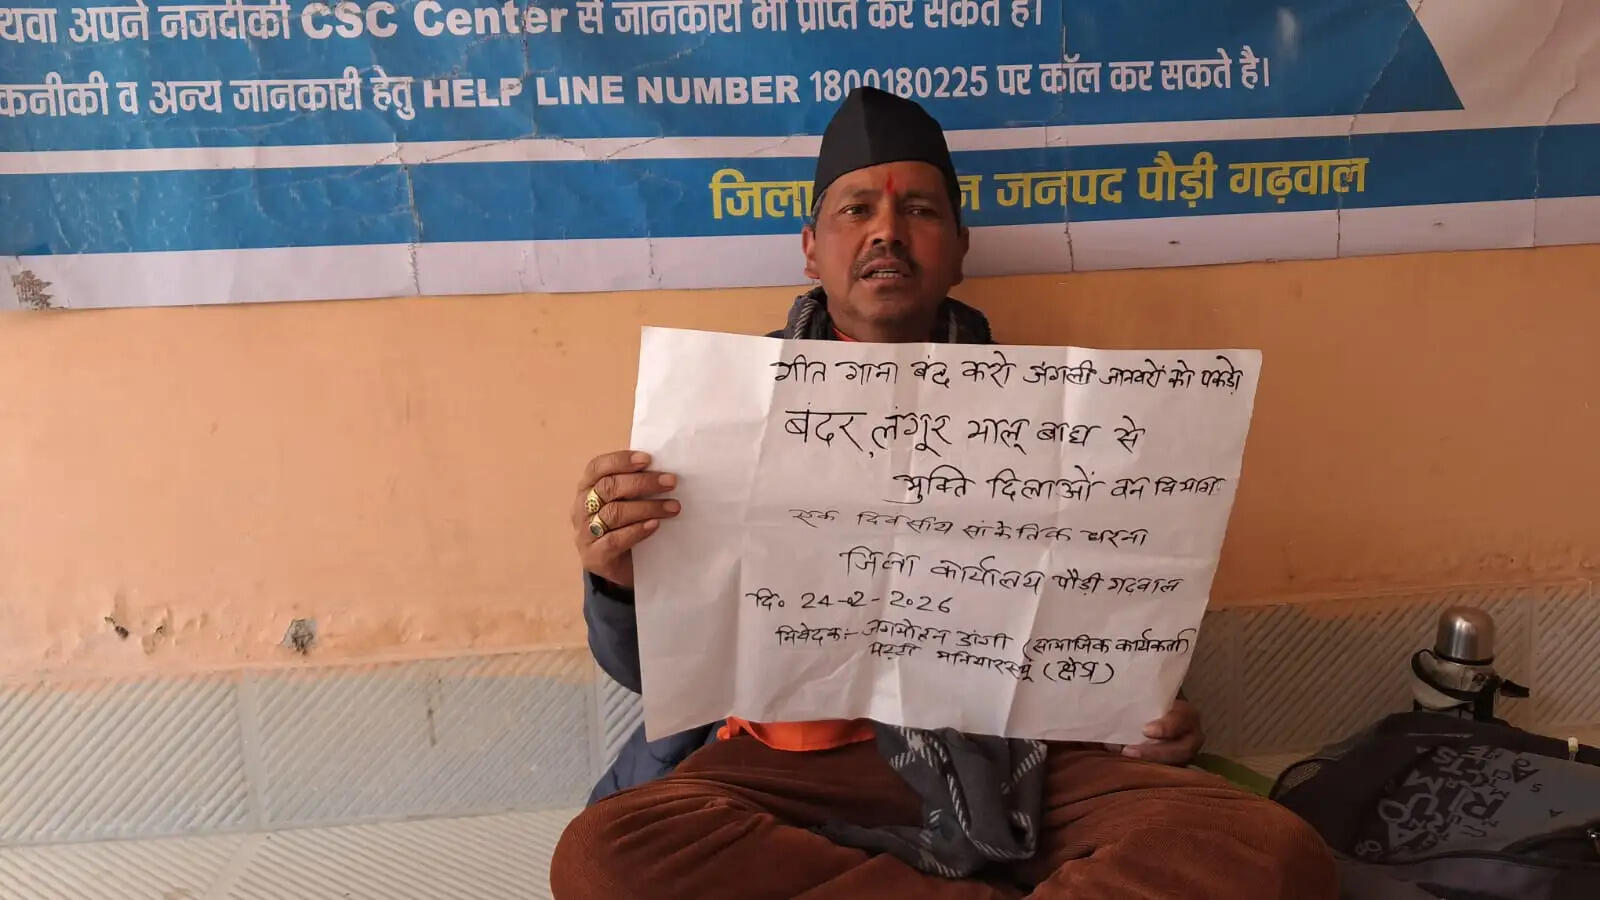 यवा अपने नजदीकी CSC Center से जानकारी भी प्राप्त कर सकते हैं।
कनीकी व अन्य जानकारी हेतु HELP LINE NUMBER 1800180225 पर कॉल कर सकते है।
जिला न जनपद पौड़ी गढ़वाल
गीत गाना बंद करो जंगली जानवरों को पकड़ो
बंदर, लंगूर भालू बाघ से
मुक्ति दिलाओं वन विभाग
एक दिवसीय सांकेतिक धरना
जिला कार्यालय पौड़ी गढ़वाल
दि० 24-02-2026
निवेदक:- जगमोहन डांगी (सामाजिक कार्यकर्ता)
मनियारस्यूं (क्षेत्र)